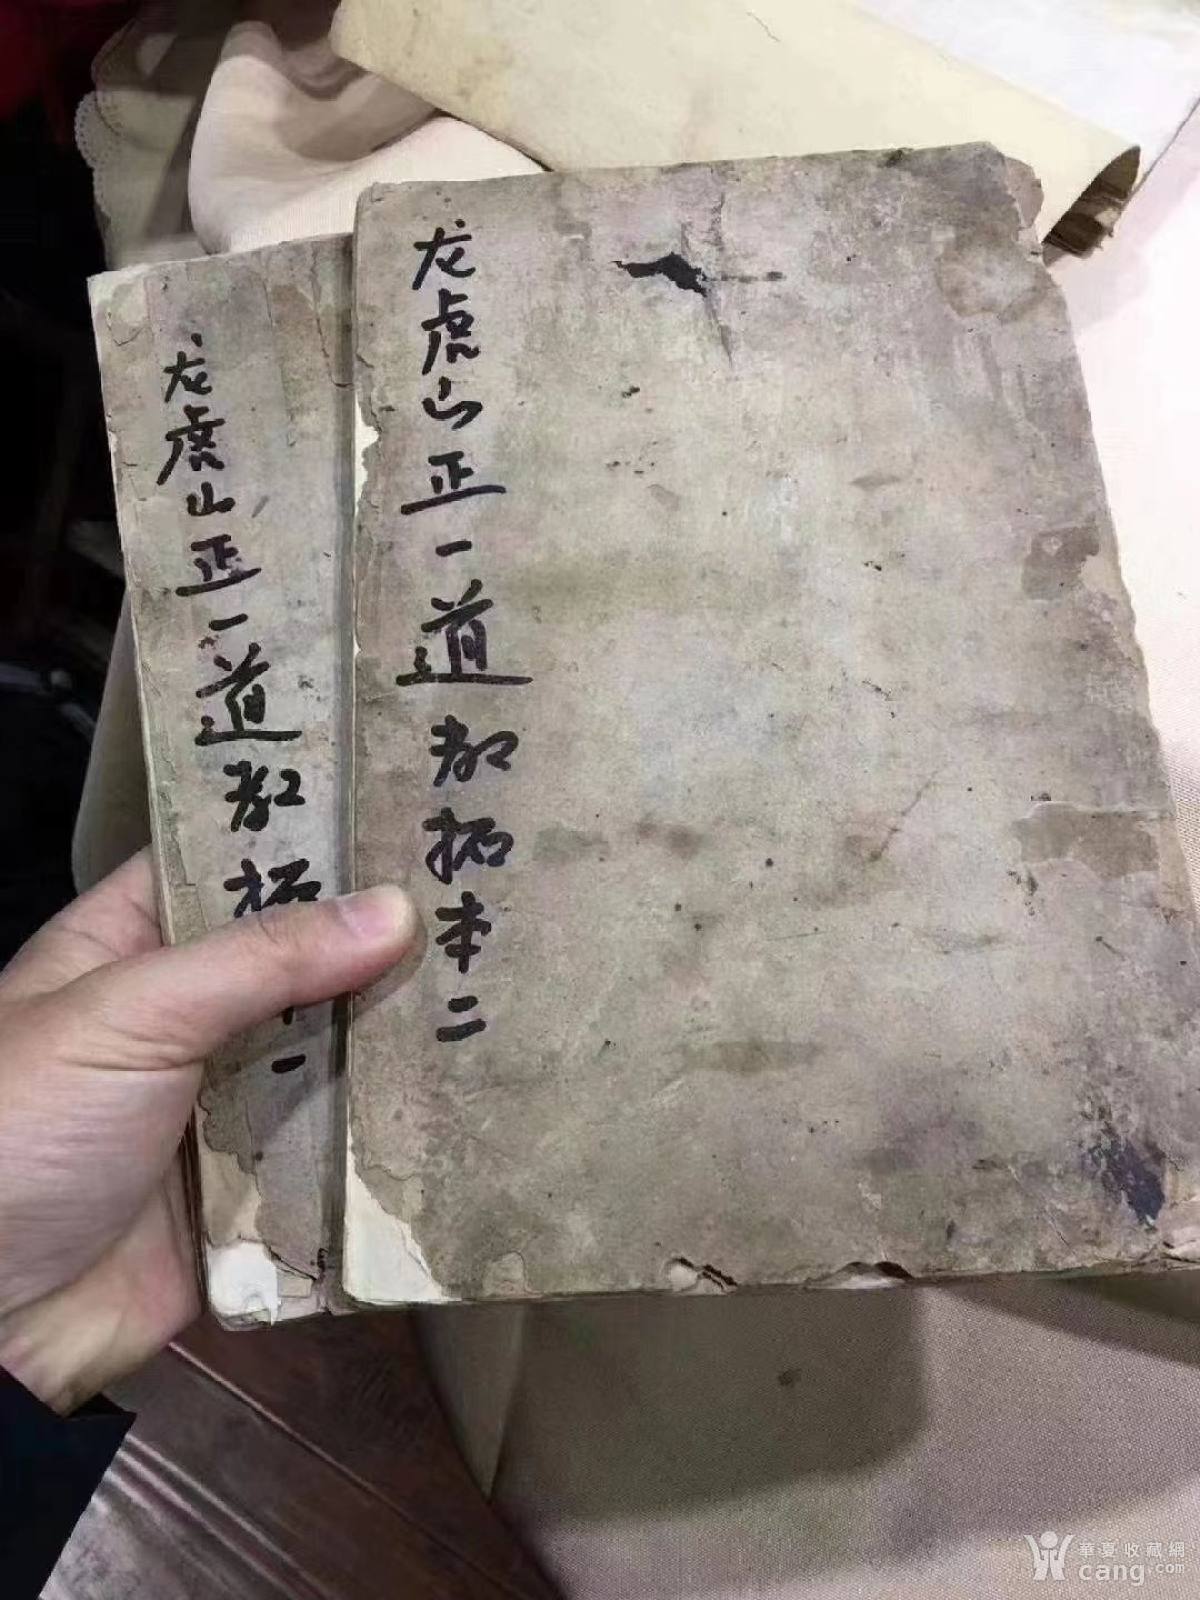 龙虎山正一道教拓本二
龙虎山正一道教拓
一
華夏收藏網
cang.com